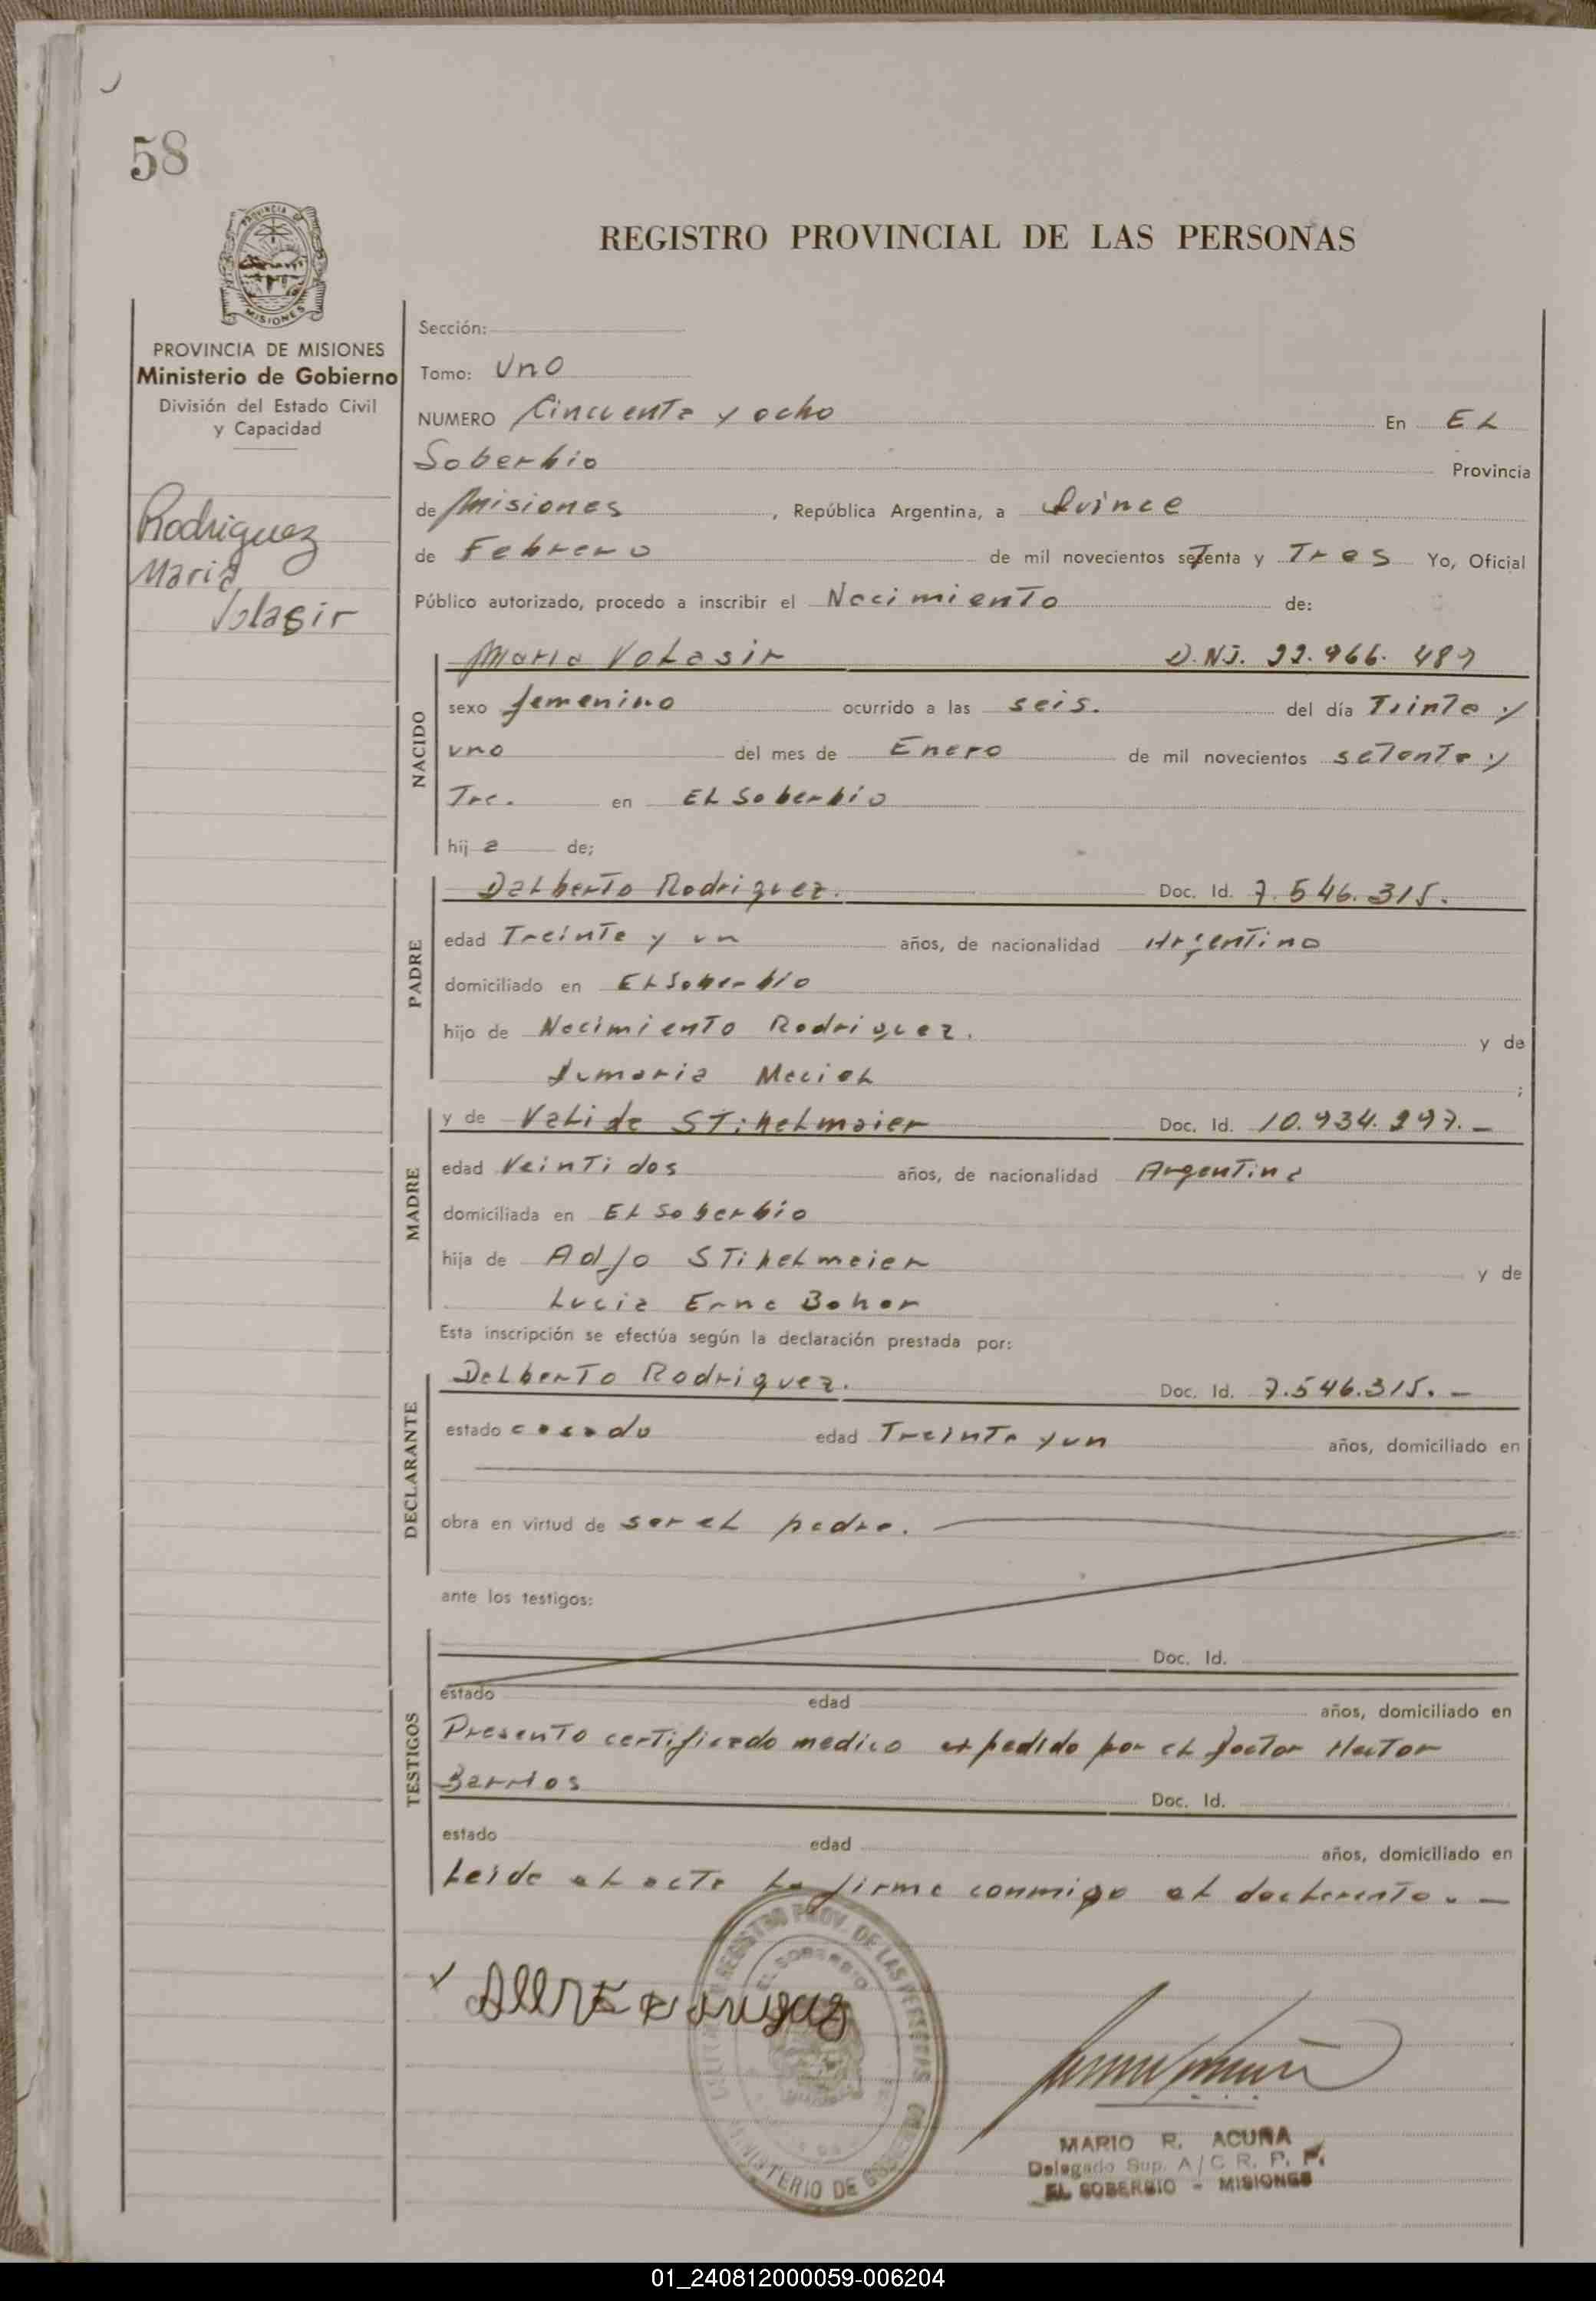 58
PROVINCIA DE MISIONES
PROVINCIA DE MISIONES
Ministerio de Gobierno
División del Estado Civil
y Capacidad
Rodriguez
Maria
Volasir
REGISTRO PROVINCIAL DE LAS PERSONAS
Sección:
Tomo: Uno
NUMERO Cincuenta y ocho En EL
Soberbio Provincia
de Misiones, República Argentina, a Quince
de Febrero de mil novecientos setenta y Tres Yo, Oficial
Público autorizado, procedo a inscribir el Nacimiento de:
NACIDO
Maria Volasir D.NI. 22.966. 489
sexo femenino ocurrido a las seis. del día Treinta y
uno del mes de Enero de mil novecientos setenta y
Tre. en EL Soberbio
hij a de;
PADRE
Dalberto Rodriguez. Doc. Id. 7.546.315.
edad Treinta y un años, de nacionalidad Argentino
domiciliado en EL Soberbio
hijo de Nacimiento Rodriguez. y de
Maciel ;
MADRE
y de Valida Stihelmaier Doc. Id. 10.934.297.-
edad Veintidos años, de nacionalidad Argentina
domiciliada en EL Soberbio
hija de Adfo Stihelmaier y de
Lucia Erna Boher
Esta inscripción se efectúa según la declaración prestada por:
DECLARANTE
Delberto Rodriguez. Doc. Id. 7.546.315.-
estado casado edad Treinta y un años, domiciliado en
obra en virtud de ser el padre.
ante los testigos:
TESTIGOS
Doc. Id.
estado edad años, domiciliado en
Presento certificado medico expedido por el doctor Hector
Barrios Doc. Id.
estado edad años, domiciliado en
Leida el acta la firma conmigo el declarante.-
REGISTRO PROV. DE LAS PERSONAS
EL SOBERBIO
MINISTERIO DE GOBIERNO
MARIO R. ACUÑA
Delegado Sup. A/C R. P. P.
EL SOBERBIO - MISIONES
01_240812000059-006204